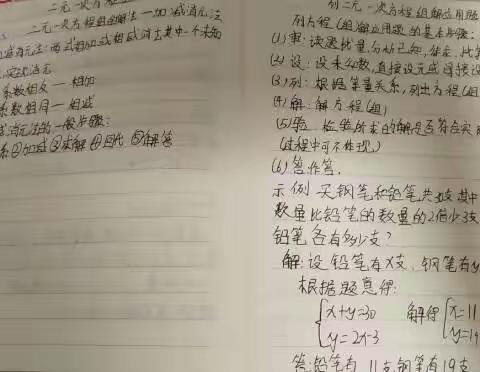 二元一次方程
二元一次方程组的解法一加减消元法
减消元法:两式相加或相减消去其中一未知
实现消元
系数相反一相加
系数相同一相减
消元法的一般步骤:
系②加减③求解④回代⑤解答
列二元一次方程组解应用题
列方程(组)解应用题的基本步骤:
(1)审:读题
(2)设:设未知数,直接设元或间接设
(3)列:根据等量关系,列出方程(组
(4)解:解方程(组)
(5)验 检验所求的解是否符合实
(过程中可不体现)
(6)答作答.
示例 买钢笔和铅笔共 支其中
数量比铅笔的数量的2倍少3支
铅笔各有多少支?
解:设铅笔有x支,钢笔有y
根据题意得:
x+y=30 解得 x=11
y=2x-3 y=19
答:铅笔有11支钢笔有19支